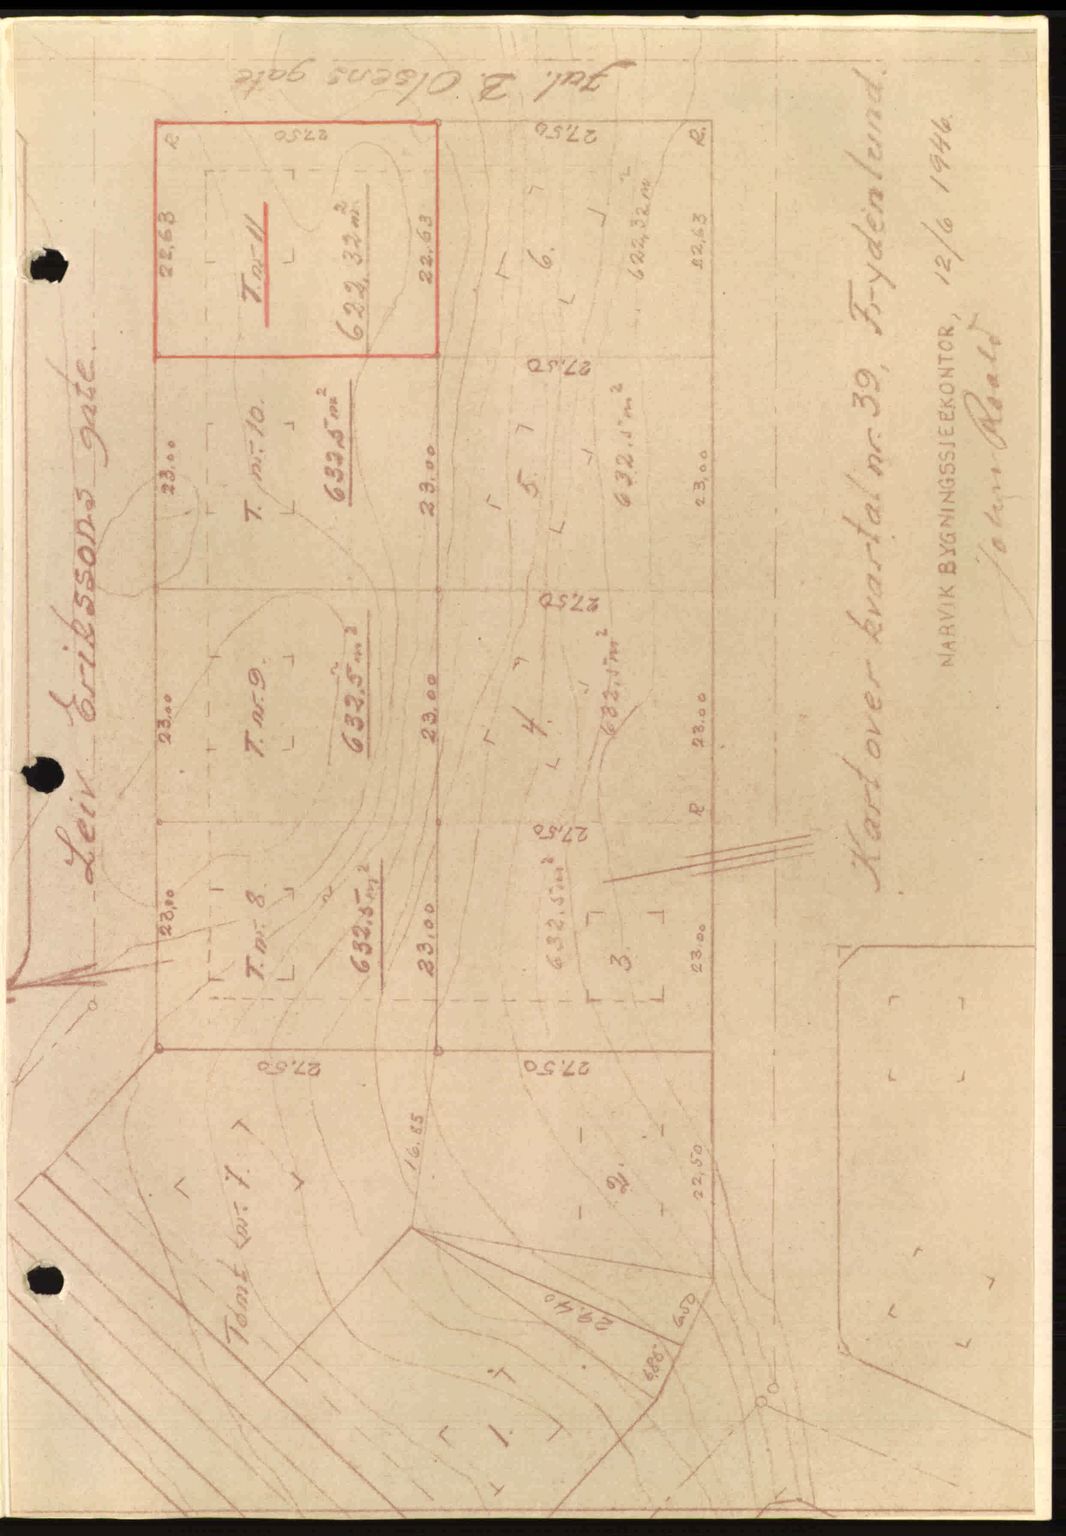 Leiv Erikssons gate.
Jul. B. Olsens gate
23,00
23,00
23,00
22,63
27,50
27,50
R.
R.
T. nr. 8.
T. nr. 9.
T. nr. 10.
T. nr. 11
632,5 m²
632,5 m²
632,5 m²
622,32 m²
23,00
23,00
23,00
22,63
27,50
27,50
27,50
27,50
27,50
3.
4.
5.
6.
632,5 m²
632,5 m²
632,5 m²
622,32 m²
23,00
23,00
23,00
22,63
R
Tomt nr. 7.
16,85
2.
22,50
29,40
6,50
6,85
1.
Kart over kvartal nr. 39, Frydenlund.
NARVIK BYGNINGSSJEFKONTOR, 12/6 1946.